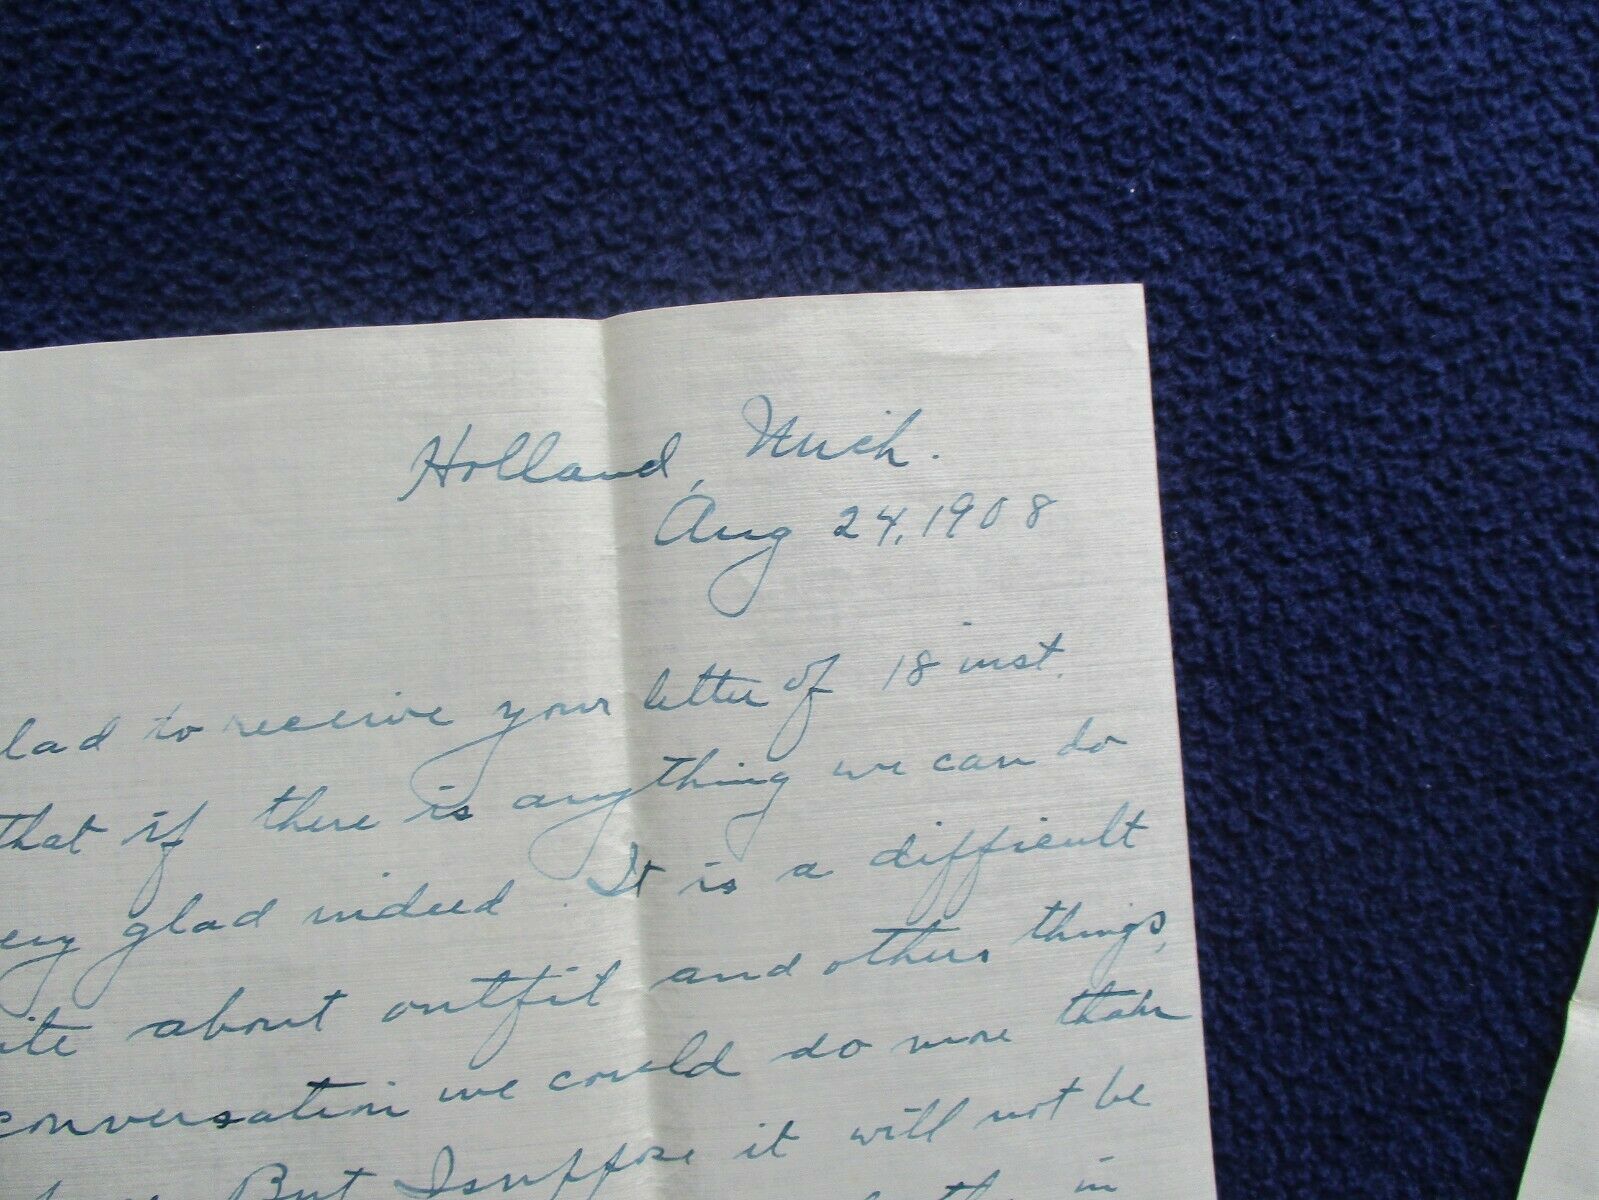 Holland, Mich.
Aug 24, 1908
lad to receive your letter of 18 inst.
that if there is anything we can do
ery glad indeed. It is a difficult
ite about outfit and other things,
conversation we could do more than
But I suppose it will not be
in